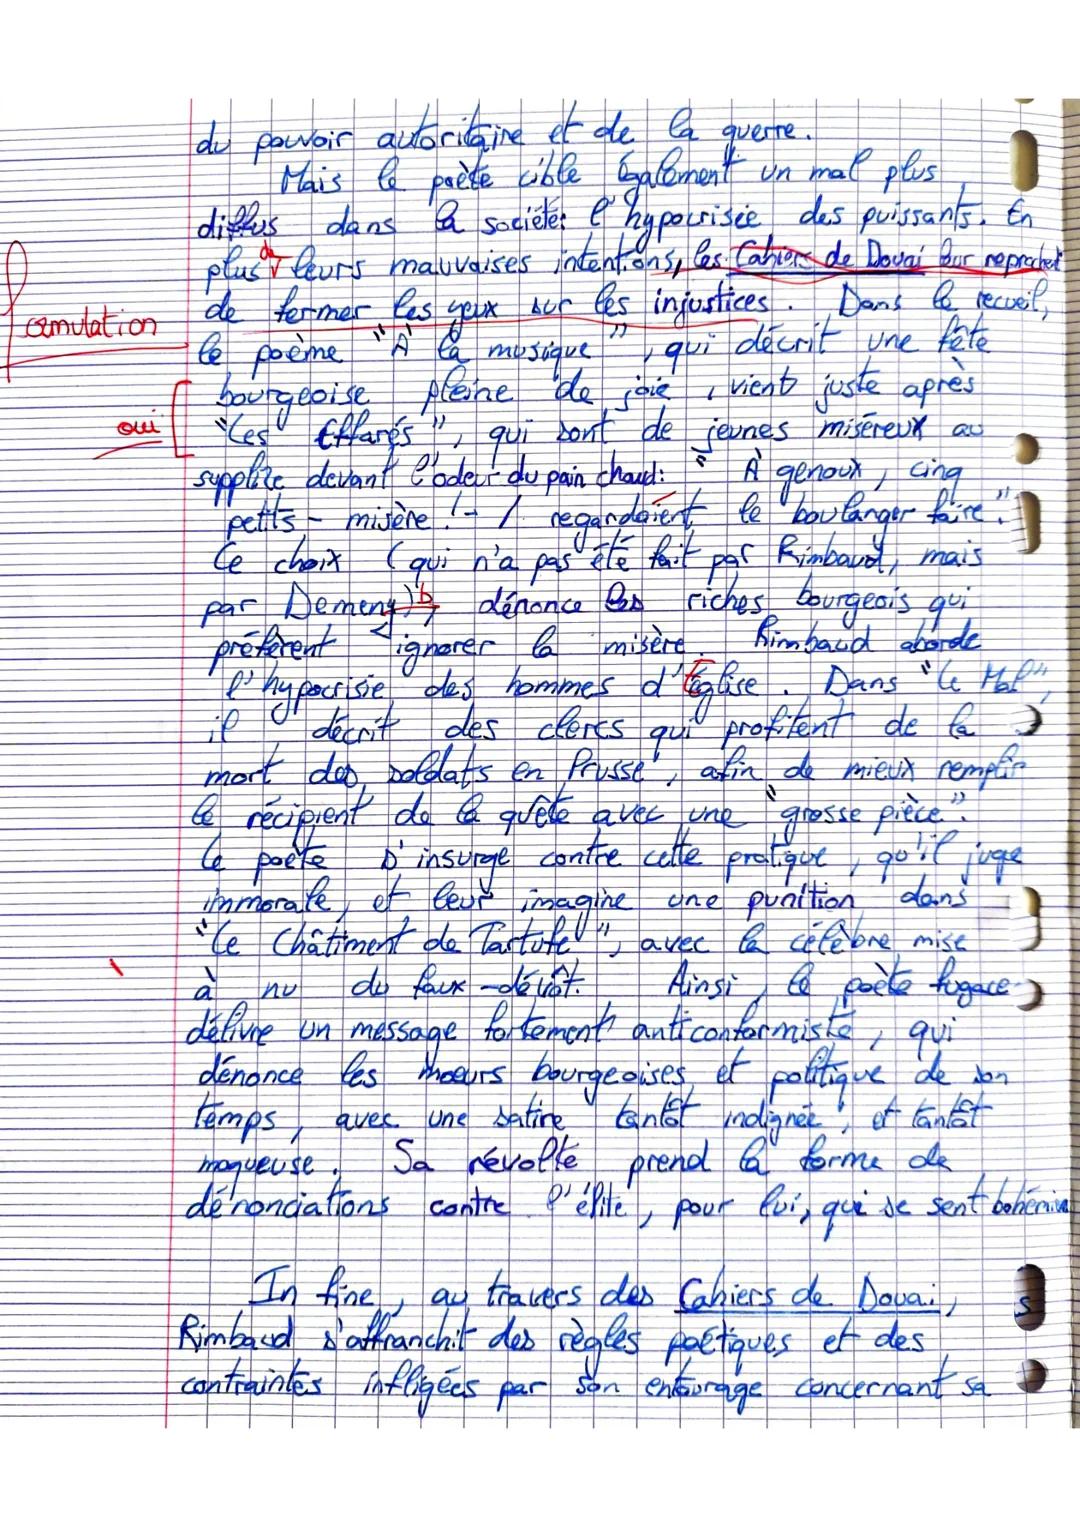 du pouvoir autoritaire et de la guerre.
Mais le poète cible également un mal plus
diffus dans la société: l'hypocrisie des puissants. En
plus de leurs mauvaises intentions, les Cahiers de Douai leur reprochent
de fermer les yeux sur les injustices. Dans le recueil,
formulation
le poème "À la musique", qui décrit une fête
bourgeoise pleine de joie, vient juste après
oui
"Les Effarés", qui sont de jeunes miséreux au
supplice devant l'odeur du pain chaud: "À genoux, cinq
petits - misère! - / regardaient le boulanger faire".
Ce choix (qui n'a pas été fait par Rimbaud, mais
par Demeny), dénonce les riches bourgeois qui
préfèrent ignorer la misère. Rimbaud aborde
l'hypocrisie des hommes d'Église. Dans "Le Mal",
il décrit des clercs qui profitent de la
mort des soldats en Prusse, afin de mieux remplir
le récipient de la quête avec une "grosse pièce".
Le poète s'insurge contre cette pratique, qu'il juge
immorale, et leur imagine une punition dans
"Le Châtiment de Tartufe", avec la célèbre mise
à nu du faux-dévôt. Ainsi, le poète fugace
délivre un message fortement anticonformiste, qui
dénonce les moeurs bourgeoises et politique de son
temps, avec une satire tantôt indignée, et tantôt
moqueuse. Sa révolte prend la forme de
dénonciations contre l'élite, pour lui, qui se sent bohémien
In fine, au travers des Cahiers de Douai,
Rimbaud s'affranchit des règles poétiques et des
contraintes infligées par son entourage concernant sa